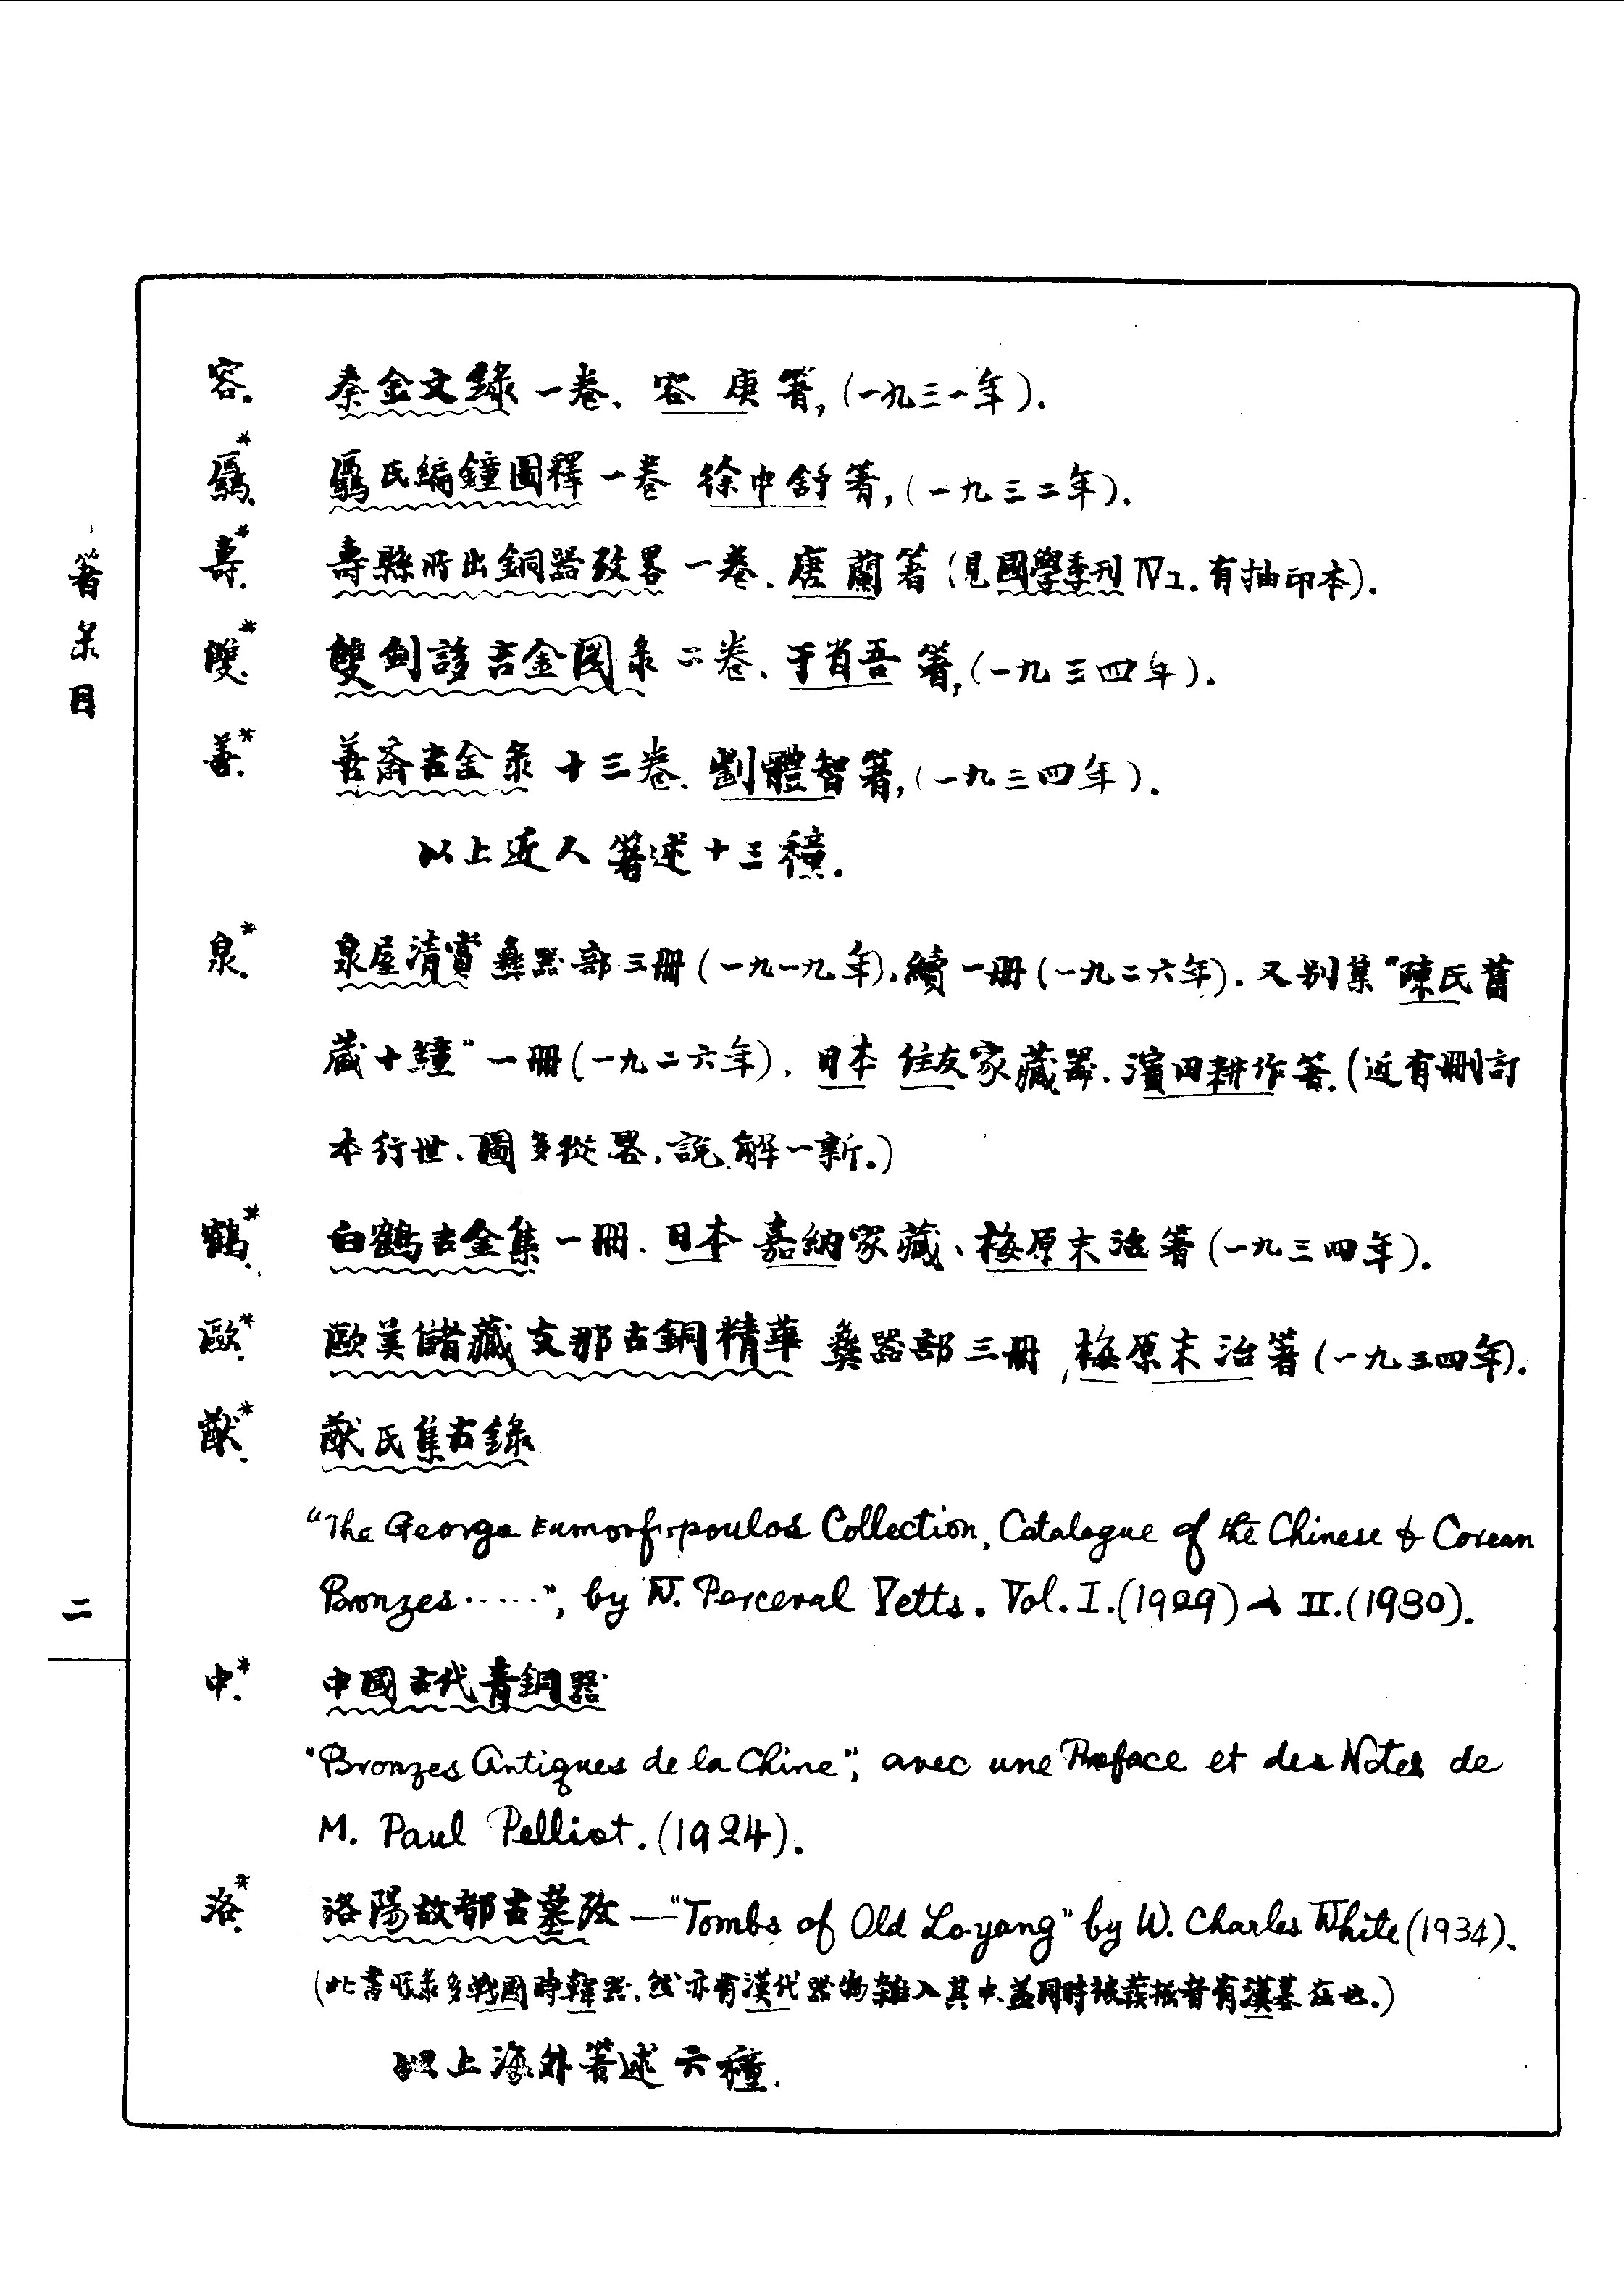 容. 秦金文錄一卷、容庚箸,(一九三一年).
鳳*. 鳳氏編鐘圖釋一卷 徐中舒箸,(一九三二年).
壽*. 壽縣所出銅器攷畧一卷、唐蘭箸(見國學季刊Ⅳ1.有抽印本).
雙*. 雙劍誃吉金図彔二卷、于省吾箸,(一九三四年).
善*. 善斋吉金彔十三卷、劉體智箸,(一九三四年).
以上近人箸述十三種.
泉*. 泉屋清賞彝器部三冊(一九一九年),續一冊(一九二六年).又别集“陳氏舊
藏十鐘”一冊(一九二六年).日本住友家藏器、濱田耕作箸.(近有刪訂
本行世、圖多從畧,說解一新.)
鶴*. 白鶴吉金集一冊、日本嘉納家藏、梅原末治箸(一九三四年).
歐*. 歐美儲藏支那古銅精華 彝器部三冊,梅原末治箸(一九三四年).
猷*. 猷氏集古錄
“The George Eumorfopoulos Collection, Catalogue of the Chinese & Corean
Bronzes ·····”, by W. Perceval Yetts. Vol. I.(1929) & II.(1930).
中*. 中國古代青銅器
“Bronzes Antiques de la Chine”, avec une Préface et des Notes de
M. Paul Pelliot. (1924).
洛*. 洛陽故都古墓攷—“Tombs of Old Lo-yang” by W. Charles White (1934).
(此書所彔多戰國時韓器,然亦有漢代器物雜入其中,蓋同時被發掘者有漢墓在也.)
以上海外箸述六種.
箸彔目
二